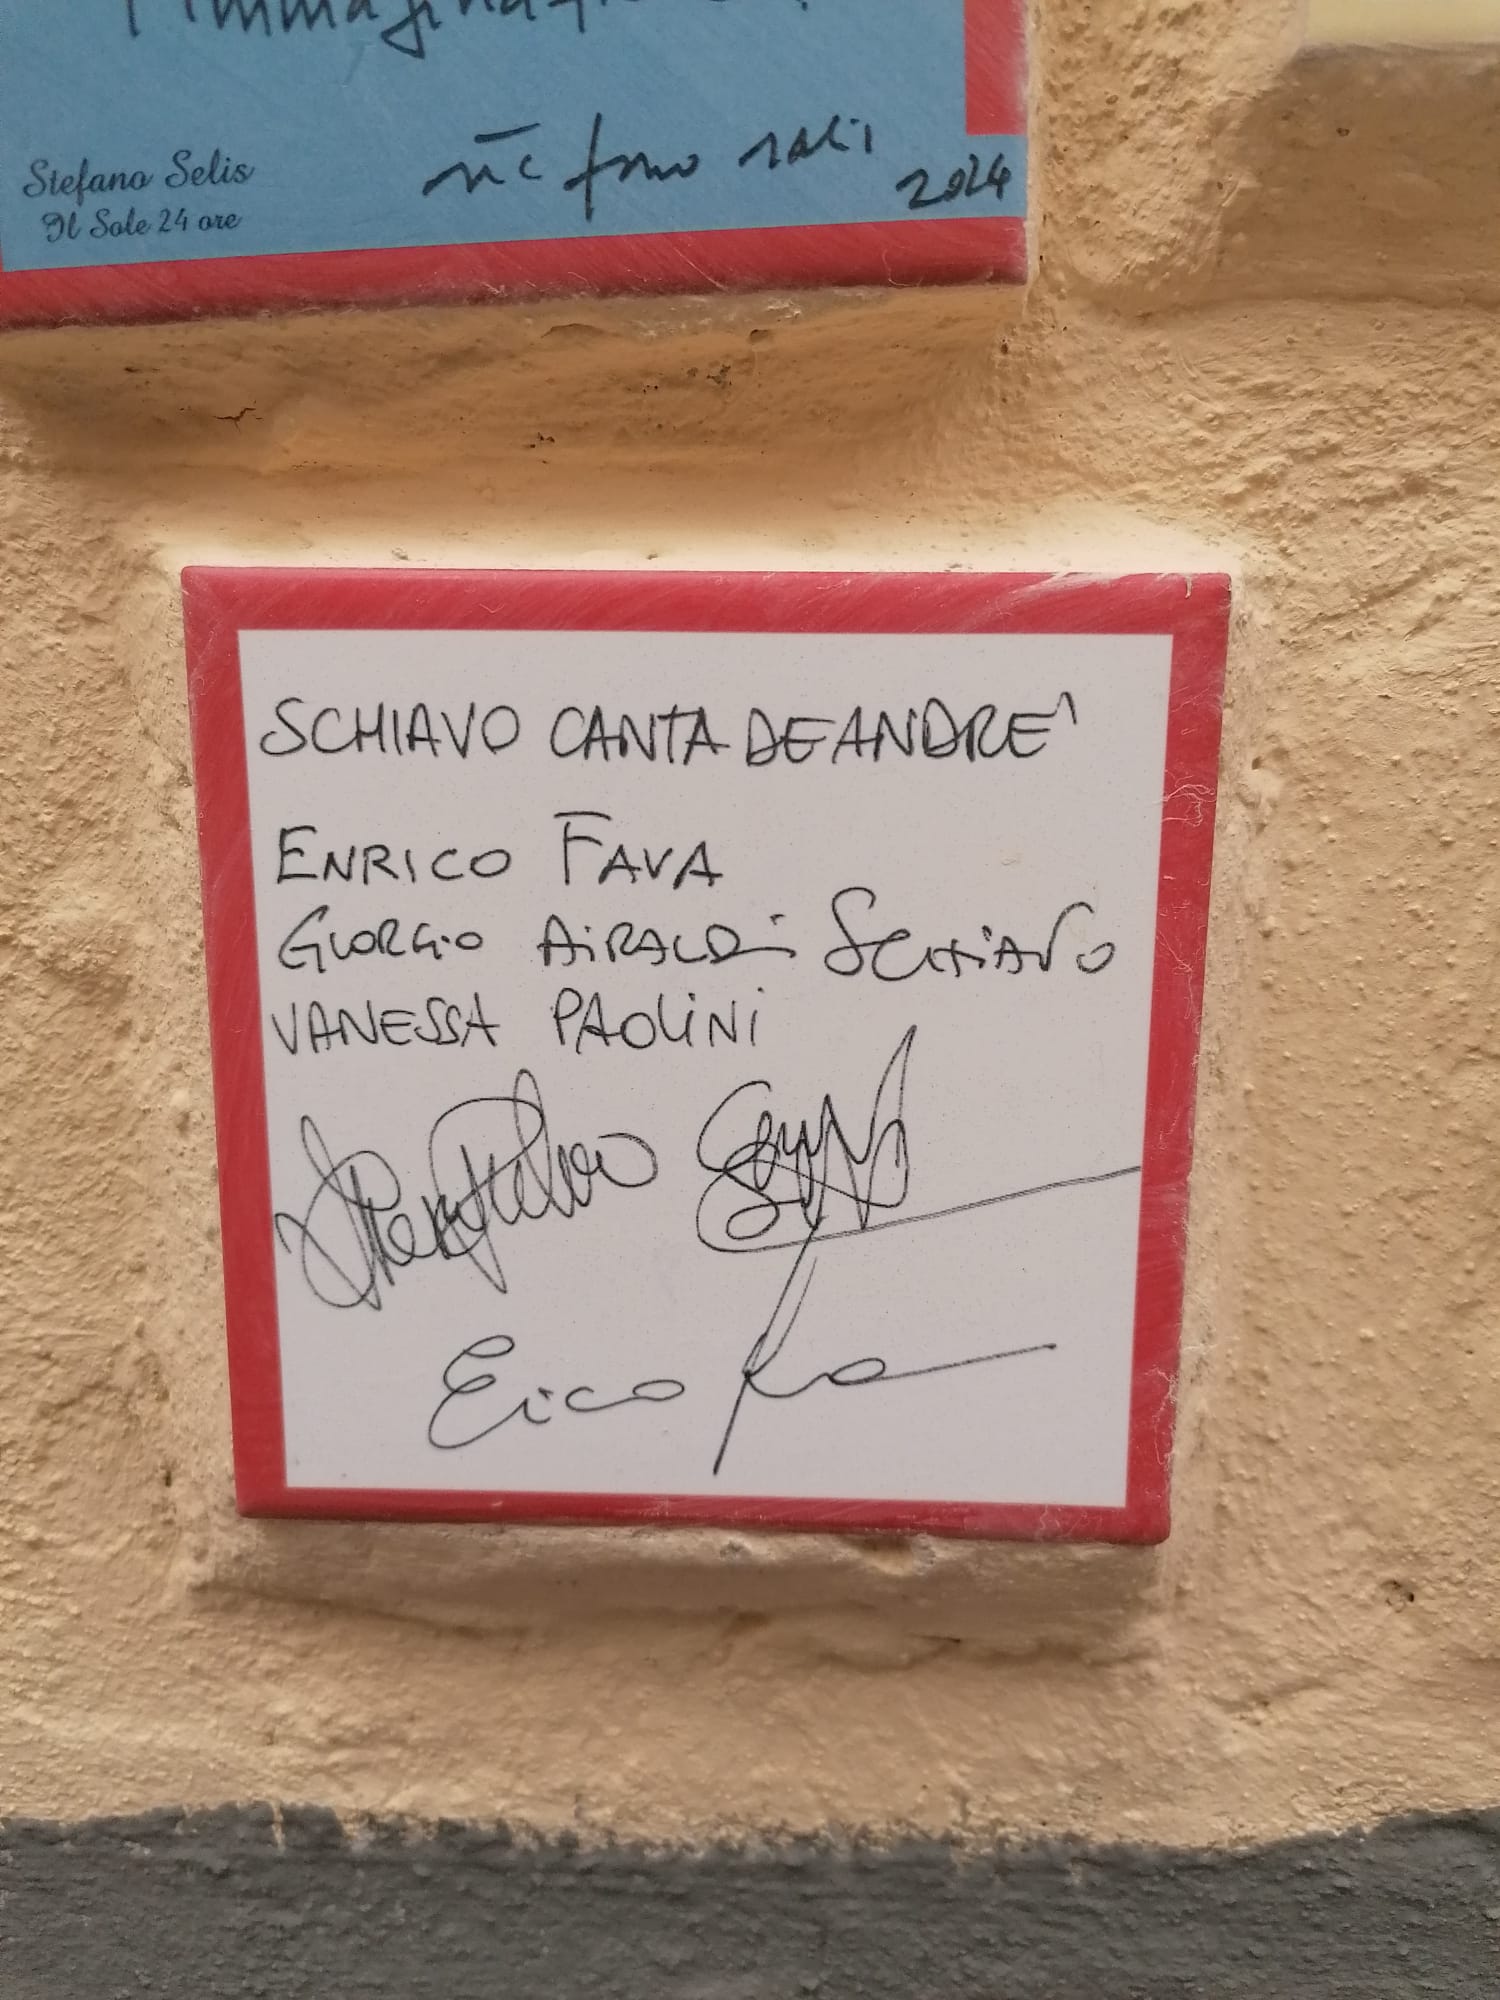 l'immaginazione!
Stefano Selis
Il Sole 24 ore
2024
SCHIAVO CANTA DE ANDRE'
ENRICO FAVA
GIORGIO AIRALDI SCHIAVO
VANESSA PAOLINI